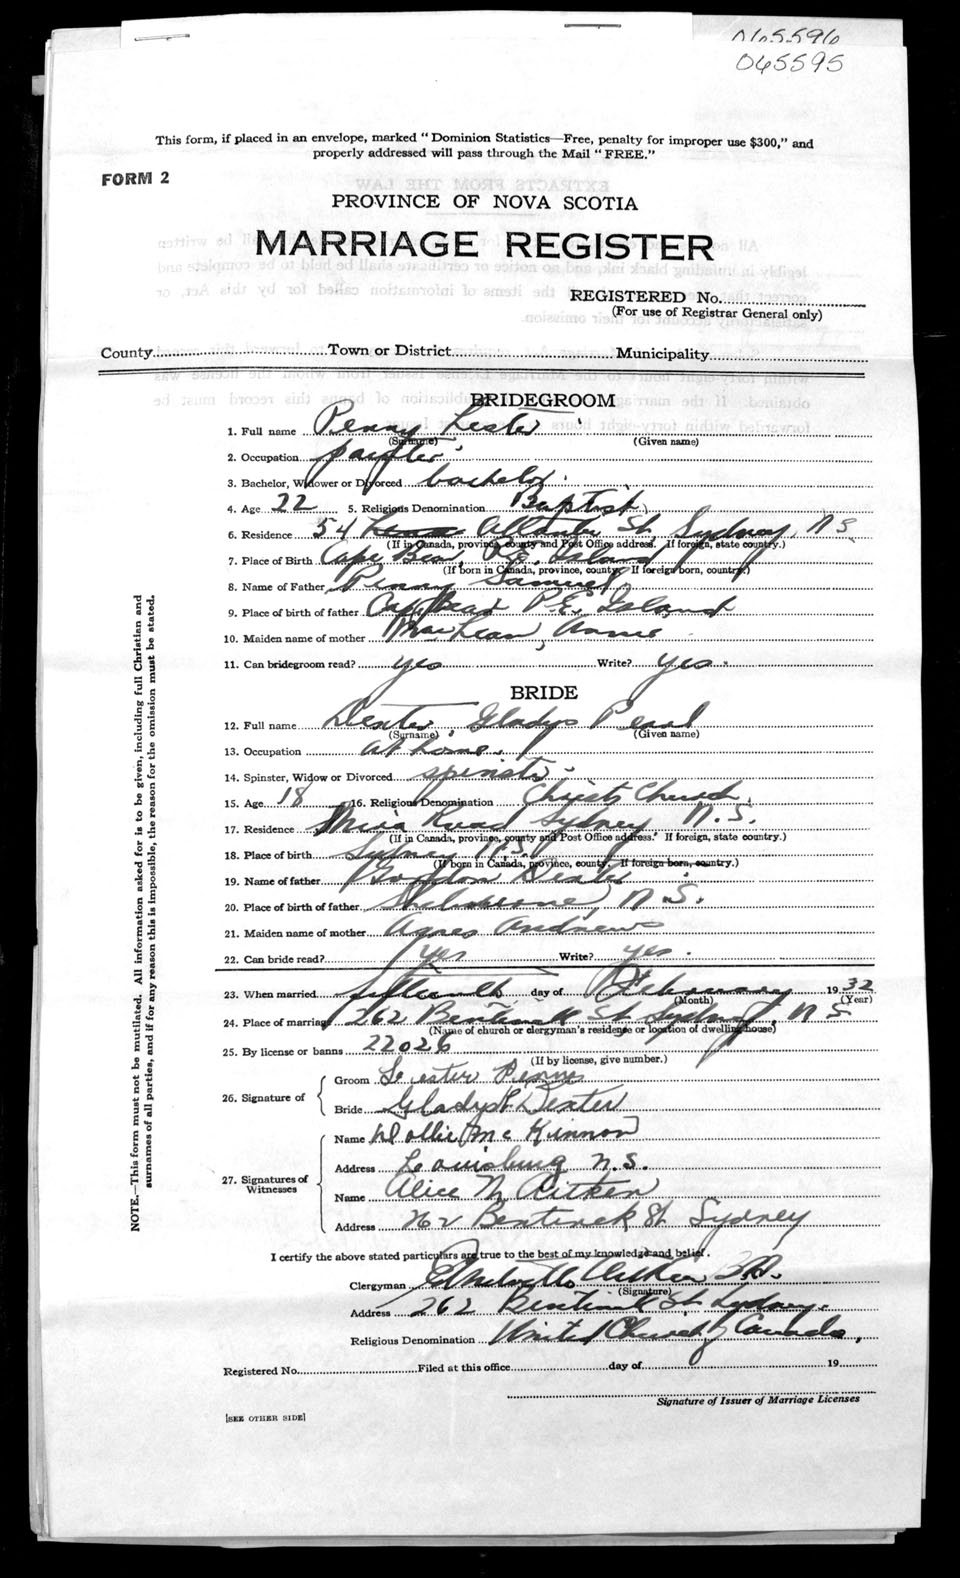 065596
065595
This form, if placed in an envelope, marked "Dominion Statistics—Free, penalty for improper use $300," and
properly addressed will pass through the Mail "FREE."
FORM 2
PROVINCE OF NOVA SCOTIA
MARRIAGE REGISTER
REGISTERED No.
(For use of Registrar General only)
County Town or District Municipality
BRIDEGROOM
1. Full name Penny Lester
(Surname) (Given name)
2. Occupation painter
3. Bachelor, Widower or Divorced bachelor.
4. Age 22 5. Religious Denomination Baptist
6. Residence 54 St, Sydney, N S.
(If in Canada, province, county and Post Office address. If foreign, state country.)
7. Place of Birth Cape Bear, P.E. Island
(If born in Canada, province, county. If foreign born, country.)
8. Name of Father Penny Samuel
9. Place of birth of father Cape Bear P.E. Island
10. Maiden name of mother MacLean, Annie
11. Can bridegroom read? yes Write? yes.
BRIDE
12. Full name Dexter, Gladys Pearl
(Surname) (Given name)
13. Occupation at home.
14. Spinster, Widow or Divorced spinster
15. Age 18 16. Religious Denomination Christ Church
17. Residence Mira Road Sydney N.S.
(If in Canada, province, county and Post Office address. If foreign, state country.)
18. Place of birth Sydney N.S.
(If born in Canada, province, county. If foreign born, country.)
19. Name of father Dexter
20. Place of birth of father Shelburne, N.S.
21. Maiden name of mother Agnes Andrews
22. Can bride read? yes Write? yes.
23. When married fifteenth day of February 1932
(Month) (Year)
24. Place of marriage 262 Bentinck St Sydney, N S
(Name of church or clergyman's residence or location of dwelling house)
25. By license or banns 22026
(If by license, give number.)
26. Signature of
Groom Lester Penny
Bride Gladys P. Dexter
27. Signatures of Witnesses
Name Dollie Mc Kinnon
Address Louisburg N.S.
Name Alice M. Aitken
Address 262 Bentinck St. Sydney
I certify the above stated particulars are true to the best of my knowledge and belief.
Clergyman E. Melville Aitken B.A.
(Signature)
Address 262 Bentinck St. Sydney.
Religious Denomination United Church of Canada,
Registered No. Filed at this office day of 19
Signature of Issuer of Marriage Licenses
[SEE OTHER SIDE]
NOTE.—This form must not be mutilated. All information asked for is to be given, including full Christian and
surnames of all parties, and if for any reason this is impossible, the reason for the omission must be stated.